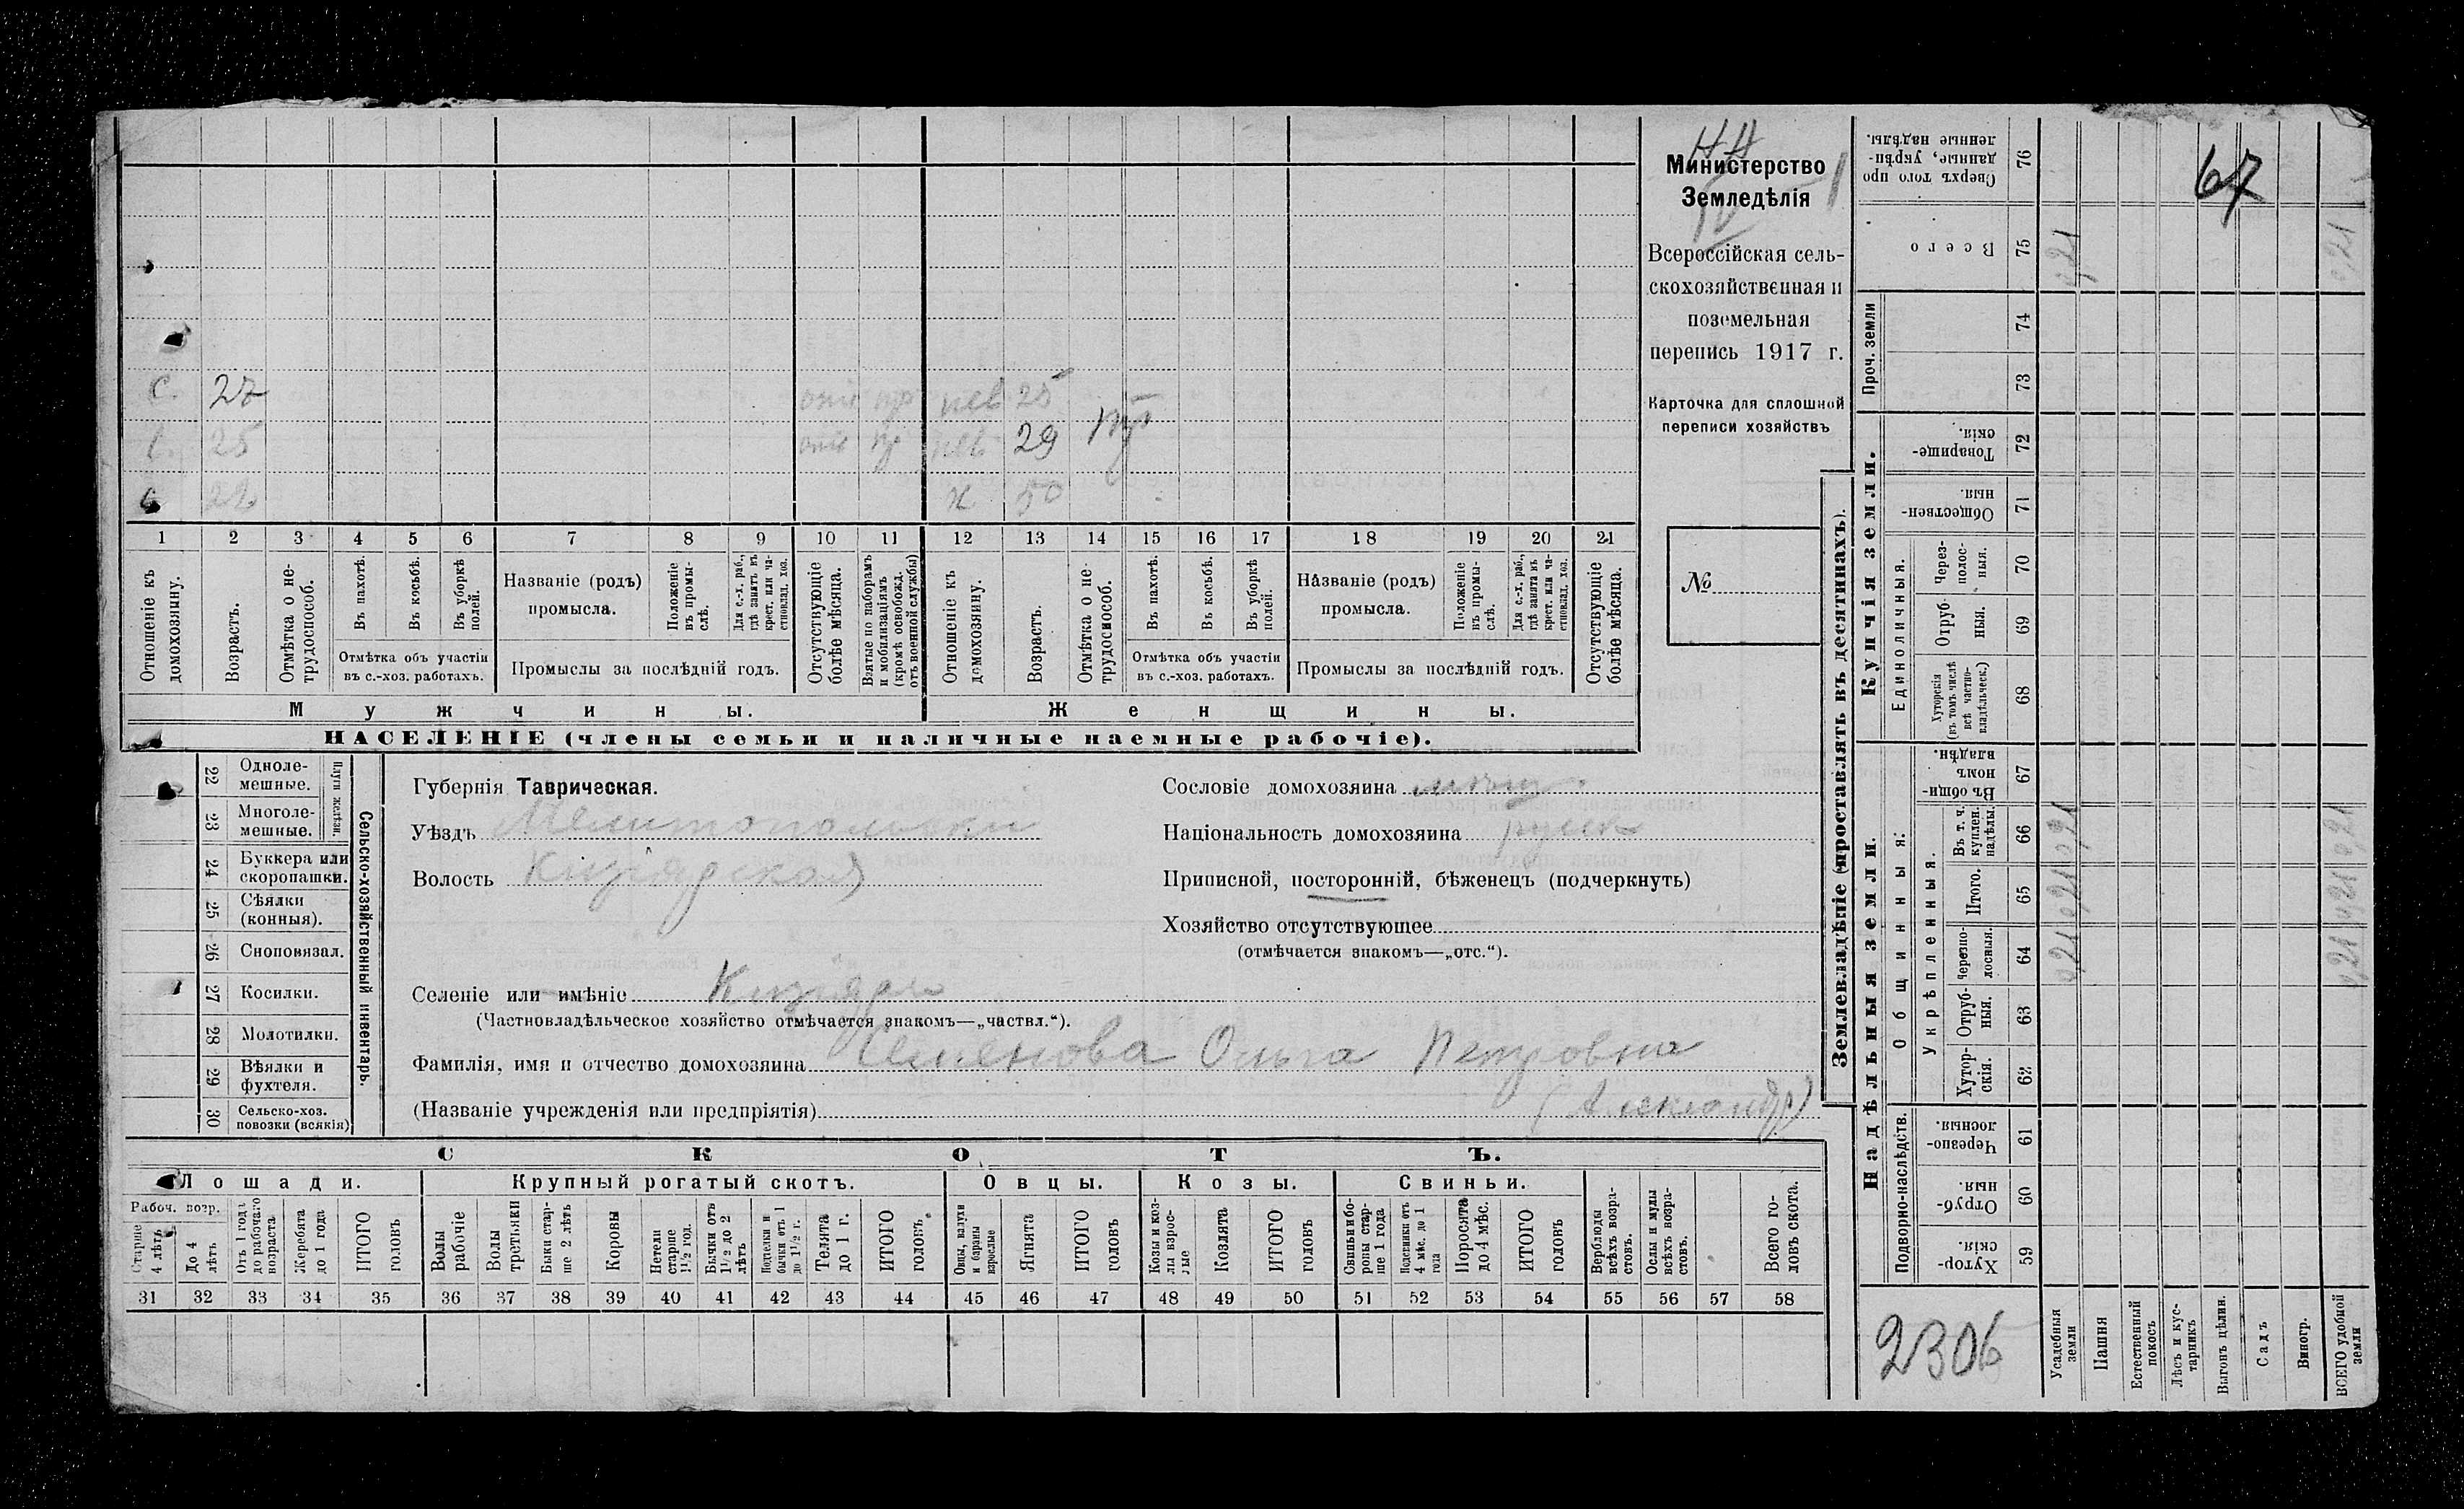 Министерство
Земледѣлія
Всероссійская сель-
скохозяйственная и
поземельная
перепись 1917 г.
Карточка для сплошной
переписи хозяйствъ
№
67
с. 27 отс 25
с. 25 отс 29
с 22 ж 50
1 2 3 4 5 6 7 8 9 10 11 12 13 14 15 16 17 18 19 20 21
Отношеніе къ домохозяину.
Возрастъ.
Отмѣтка о не-трудоспособ.
Въ пахотѣ.
Въ косьбѣ.
Въ уборкѣ полей.
Отмѣтка объ участіи
въ с.-хоз. работахъ.
Названіе (родъ)
промысла.
Положеніе въ промы-слѣ.
Для с.-х. раб., гдѣ занятъ въ крест. или ча-стновлад. хоз.
Промыслы за послѣдній годъ.
Отсутствующіе болѣе мѣсяца.
Взятые по наборамъ и мобилизаціямъ (кромѣ освобожд. отъ военной службы)
Отношеніе къ домохозяину.
Возрастъ.
Отмѣтка о не-трудоспособ.
Въ пахотѣ.
Въ косьбѣ.
Въ уборкѣ полей.
Отмѣтка объ участіи
въ с.-хоз. работахъ.
Названіе (родъ)
промысла.
Положеніе въ промы-слѣ.
Для с.-х. раб., гдѣ занята въ крест. или ча-стновлад. хоз.
Промыслы за послѣдній годъ.
Отсутствующіе болѣе мѣсяца.
Мужчины. Женщины.
НАСЕЛЕНІЕ (члены семьи и наличные наемные рабочіе).
22 Одноле-мешные.
23 Многоле-мешные.
Плуги желѣзн.
24 Буккера или скоропашки.
25 Сѣялки (конныя).
26 Сноповязал.
27 Косилки.
28 Молотилки.
29 Вѣялки и фухтеля.
30 Сельско-хоз. повозки (всякія)
Сельско-хозяйственный инвентарь.
Губернія Таврическая.
Уѣздъ Мелитопольскій
Волость Кизіярская
Сословіе домохозяина мѣщ.
Національность домохозяина русск
Приписной, посторонній, бѣженецъ (подчеркнуть)
Хозяйство отсутствующее
(отмѣчается знакомъ—„отс.“).
Селеніе или имѣніе Кизіяръ
(Частновладѣльческое хозяйство отмѣчается знакомъ—„частвл.“).
Фамилія, имя и отчество домохозяина Семенова Ольга Петровна
(Названіе учрежденія или предпріятія) (Александр)
СКОТЪ.
Лошади. Крупный рогатый скотъ. Овцы. Козы. Свиньи.
Рабоч. возр.
Старше 4 лѣтъ
До 4 лѣтъ
Отъ 1 года до рабочаго возраста
Жеребята до 1 года
ИТОГО головъ
Волы рабочіе
Волы третьяки
Быки стар-ше 2 лѣтъ
Коровы
Нетели старше 1½ год.
Бычки отъ 1½ до 2 лѣтъ
Подтелки и бычки отъ 1 до 1½ г.
Телята до 1 г.
ИТОГО головъ.
Овцы, валухи и бараны взрослые
Ягнята
ИТОГО головъ
Козы и коз-лы взрос-лые
Козлята
ИТОГО головъ
Свиньи и бо-ровы стар-ше 1 года
Подсвинки отъ 4 мѣс. до 1 года
Поросята до 4 мѣс.
ИТОГО головъ
Верблюды всѣхъ возра-стовъ.
Ослы и мулы всѣхъ возра-стовъ.
Всего го-ловъ скота.
31 32 33 34 35 36 37 38 39 40 41 42 43 44 45 46 47 48 49 50 51 52 53 54 55 56 57 58
Землевладѣніе (проставлять въ десятинахъ).
Купчія земли.
Надѣльныя земли.
Сверхъ того про данные, укрѣп-ленные надѣлы. 76
Всего 75 0,21 0,21
Проч. земли 74
73
Товарище-скія. 72
Обществен-ныя. 71
Единоличныя.
Черезполос-ныя. 70
Отруб-ныя. 69
Хуторскія (въ томъ числѣ всѣ частно-владѣльческ.) 68
Въ общи-номъ владѣн. 67
Общинныя:
Укрѣпленныя.
Въ т. ч. куплен. надѣлы. 66 0,21 0,21
Итого. 65 0,21 0,21
Черезпо-лосныя. 64 0,21 0,21
Отруб-ныя. 63
Хутор-скія. 62
Подворно-наслѣдств.
Черезпо-лосныя. 61
Отруб-ныя. 60
Хутор-скія. 59
2306
Усадебныя земли
Пашня
Естественный покосъ
Лѣсъ и кус-тарникъ
Выгонъ цѣлин.
Садъ
Виногр.
ВСЕГО удобной земли